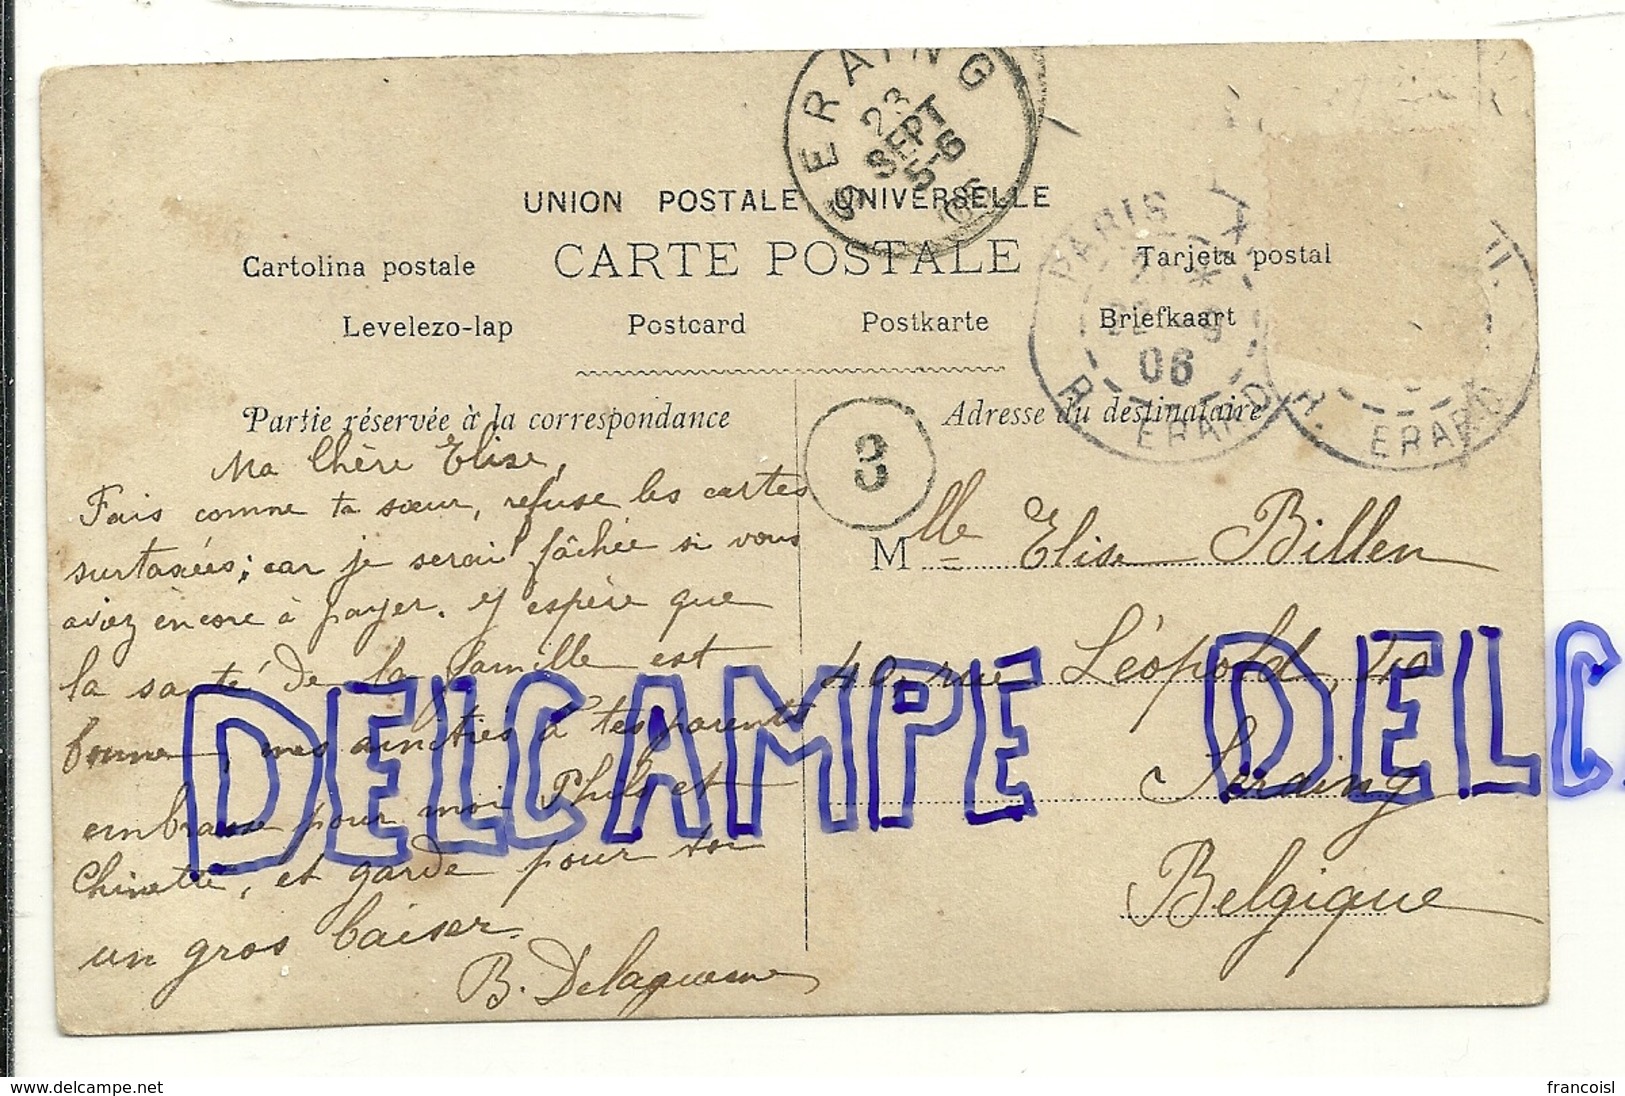 SERAING
23
SEPT
5-6
UNION POSTALE UNIVERSELLE
CARTE POSTALE
Cartolina postale
Tarjeta postal
Levelezo-lap
Postcard
Postkarte
Briefkaart
PARIS
22 9
06
R. ERARD
R. ERARD
Partie réservée à la correspondance
Ma Chère Elise,
Fais comme ta sœur, refuse les cartes
surtaxées; car je serai fâchée si vous
aviez encore à payer. J'espère que
la santé de la famille est
bonne, mes amitiés à tes parents
embrasse pour moi et
Chinette, et garde pour toi
un gros baiser.
B.
3
Adresse du destinataire
Mlle Elise Billen
40, rue Léopold, 40
Seraing
Belgique
DELCAMPE DELC
www.delcampe.net
francoisl